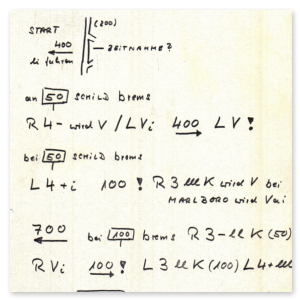 START (200)
400 ZEITNAHME?
li fahren
an 50 SCHILD brems
R 4 - wird V / L Vi 400 L V !
bei 50 SCHILD brems
L 4 + i 100 ! R 3 ll K wird V bei
MARLBORO wird Vai
700 bei 100 brems R 3 - ll K (50)
R Vi 100 ! L 3 ll K (100) L 4 + ll